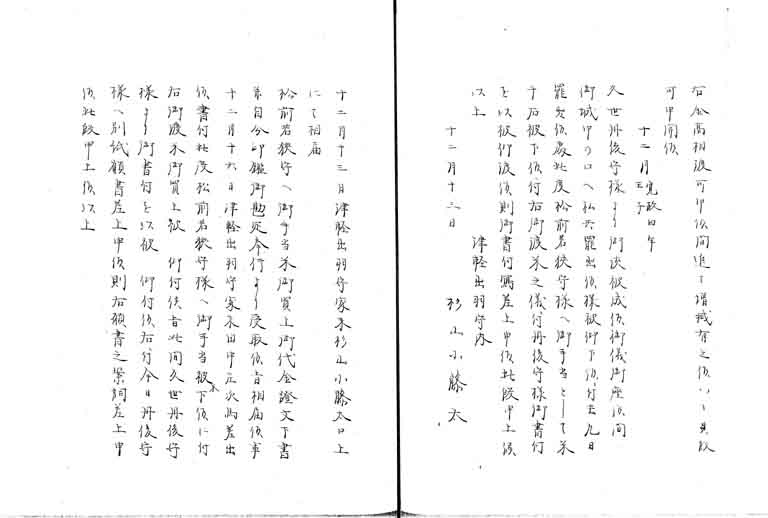 右金高相渡可申候間追而増減有之候ハヽ其段
可申聞候
十二月 寛政四年壬子
久世丹後守様より御談被成候御儀御座候間
御城中ノ口へ私共罷出候様被仰下候ニ付去九日
罷出候処此度松前若狭守様へ御手当として米
千石被下候ニ付右御渡米之儀ニ付丹後守様御書付
を以被仰渡候則御書付写差上申候此段申上候
以上
津軽出羽守内
十二月十三日 杉山小藤太
十二月十三日津軽出羽守家来杉山小藤太口上
にて相届
松前若狭守へ御手当米御買上御代金證文下書
并自分印鑑御勘定奉行より受取候旨相届候事
十二月十六日津軽出羽守家来田中正次郎差出
候書付此度松前若狭守様へ御手当米被下候に付
右御渡米御買上被 仰付候旨此間久世丹後守
様より御書付を以被 仰付候右ニ付今日丹後守
様へ別紙願書差上申候則右願書之案詞差上申
候此段申上候以上